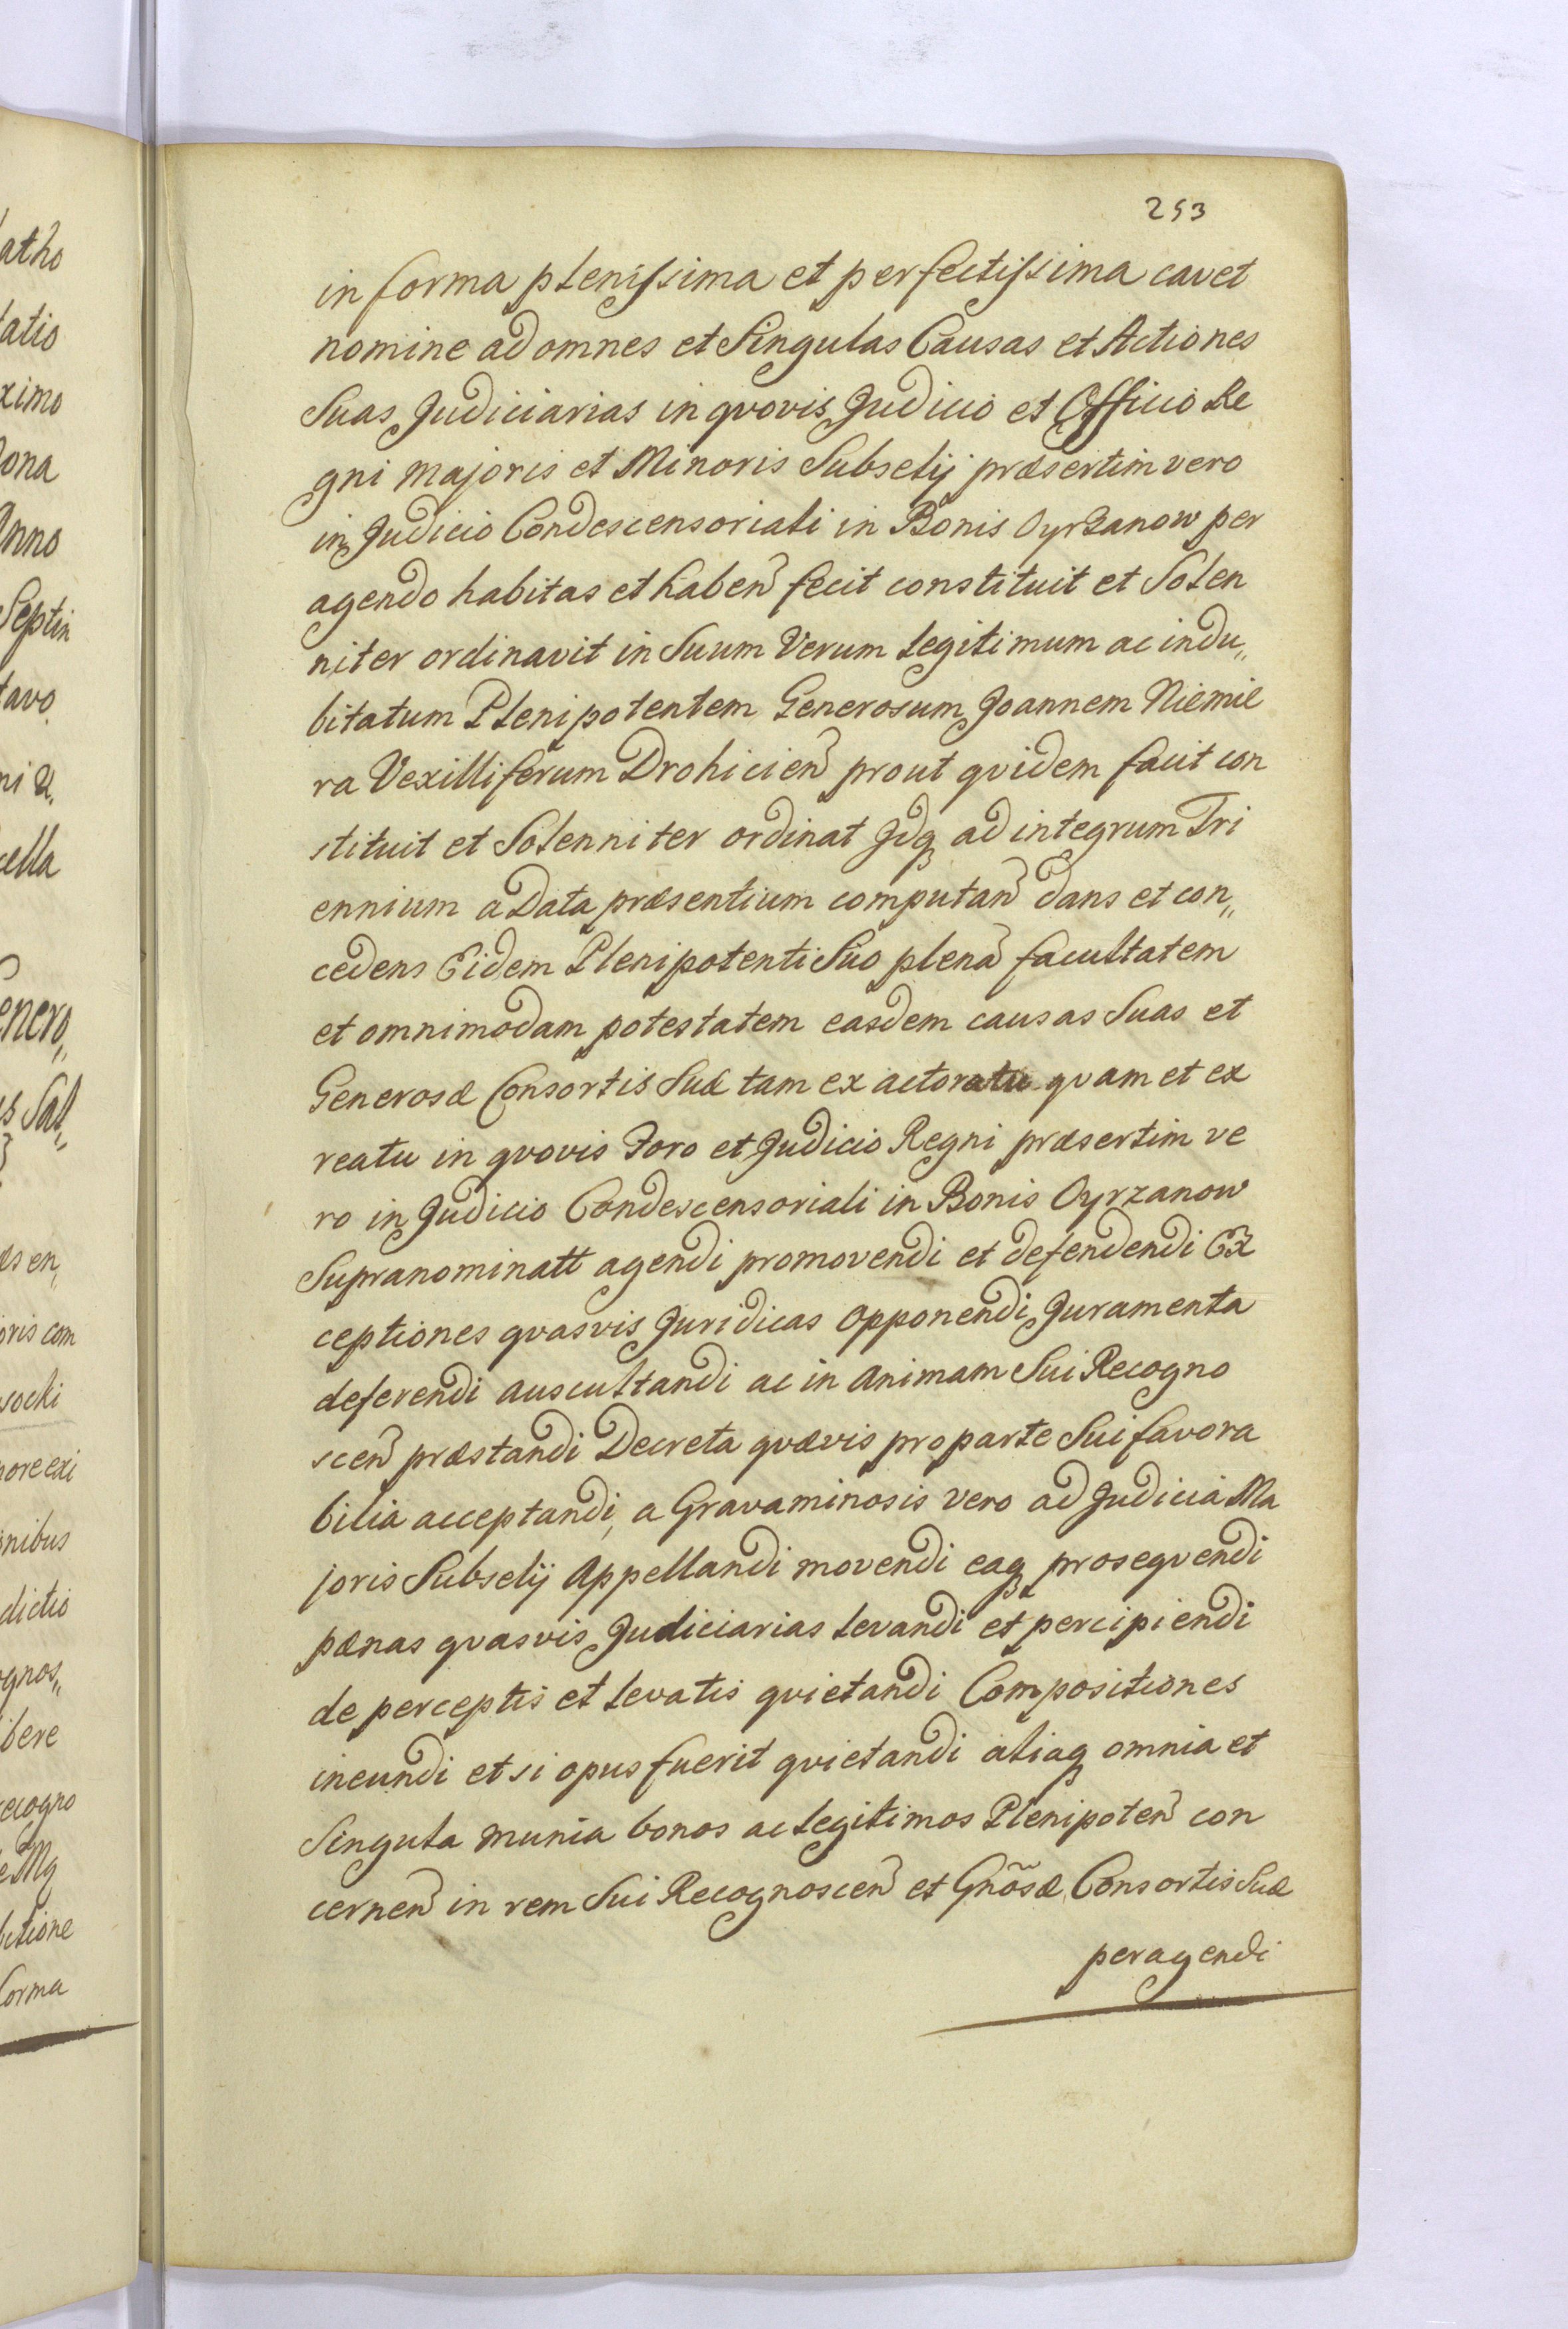 253
in forma plenissima et perfectissima cavet
nomine ad omnes et Singulas Causas et Actiones
Suas Judiciarias in qvovis Judicio et Officio Re
gni majoris et Minoris Subselij præsertim vero
in Judicio Condescensoriali in Bonis Oyrzanow per
agendo habitas et haben̄ fecit constituit et Solen
niter ordinavit in Suum Verum legitimum ac indu„
bitatum Plenipotentem Generosum Joannem Niemie
ra Vexilliferum Drohicien̄ prout qvidem facit con
stituit et Solenniter ordinat Jdq ad integrum Tri
ennium a Data præsentium computan̄ dans et con„
cedens Eidem Plenipotenti Suo plenā facultatem
et omnimodam potestatem easdem causas Suas et
Generosæ Consortis Suæ tam ex actoratu qvam et ex
reatu in qvovis Foro et Judicio Regni præsertim ve
ro in Judicio Condescensoriali in Bonis Oyrzanow
Supranominatt agendi promovendi et defendendi Ex
ceptiones qvasvis Juridicas opponendi Juramenta
deferendi auscultandi ac in animam Sui Recogno
scen̄ præstandi Decreta qvævis pro parte Sui favora
bilia acceptandi, a Gravaminosis vero ad Judicia Ma
joris Subselij Appellandi movendi eaq proseqvendi
pænas qvasvis Judiciarias levandi et percipiendi
de perceptis et levatis qvietandi Compositiones
ineundi et si opus fuerit qvietandi aliaq omnia et
Singula munia bonos ac legitimos Plenipoten̄ con
cernen̄ in rem Sui Recognoscen̄ et Gñosæ Consortis Suæ
peragendi
atho
atio
ximo
ona
Anno
Septin
tavo
ni &.
cella
enero„
s Sal„
æs en„
oris com
socki
more exi
nibus
dictio
ognos„
ibere
ecogno
ctione
forma